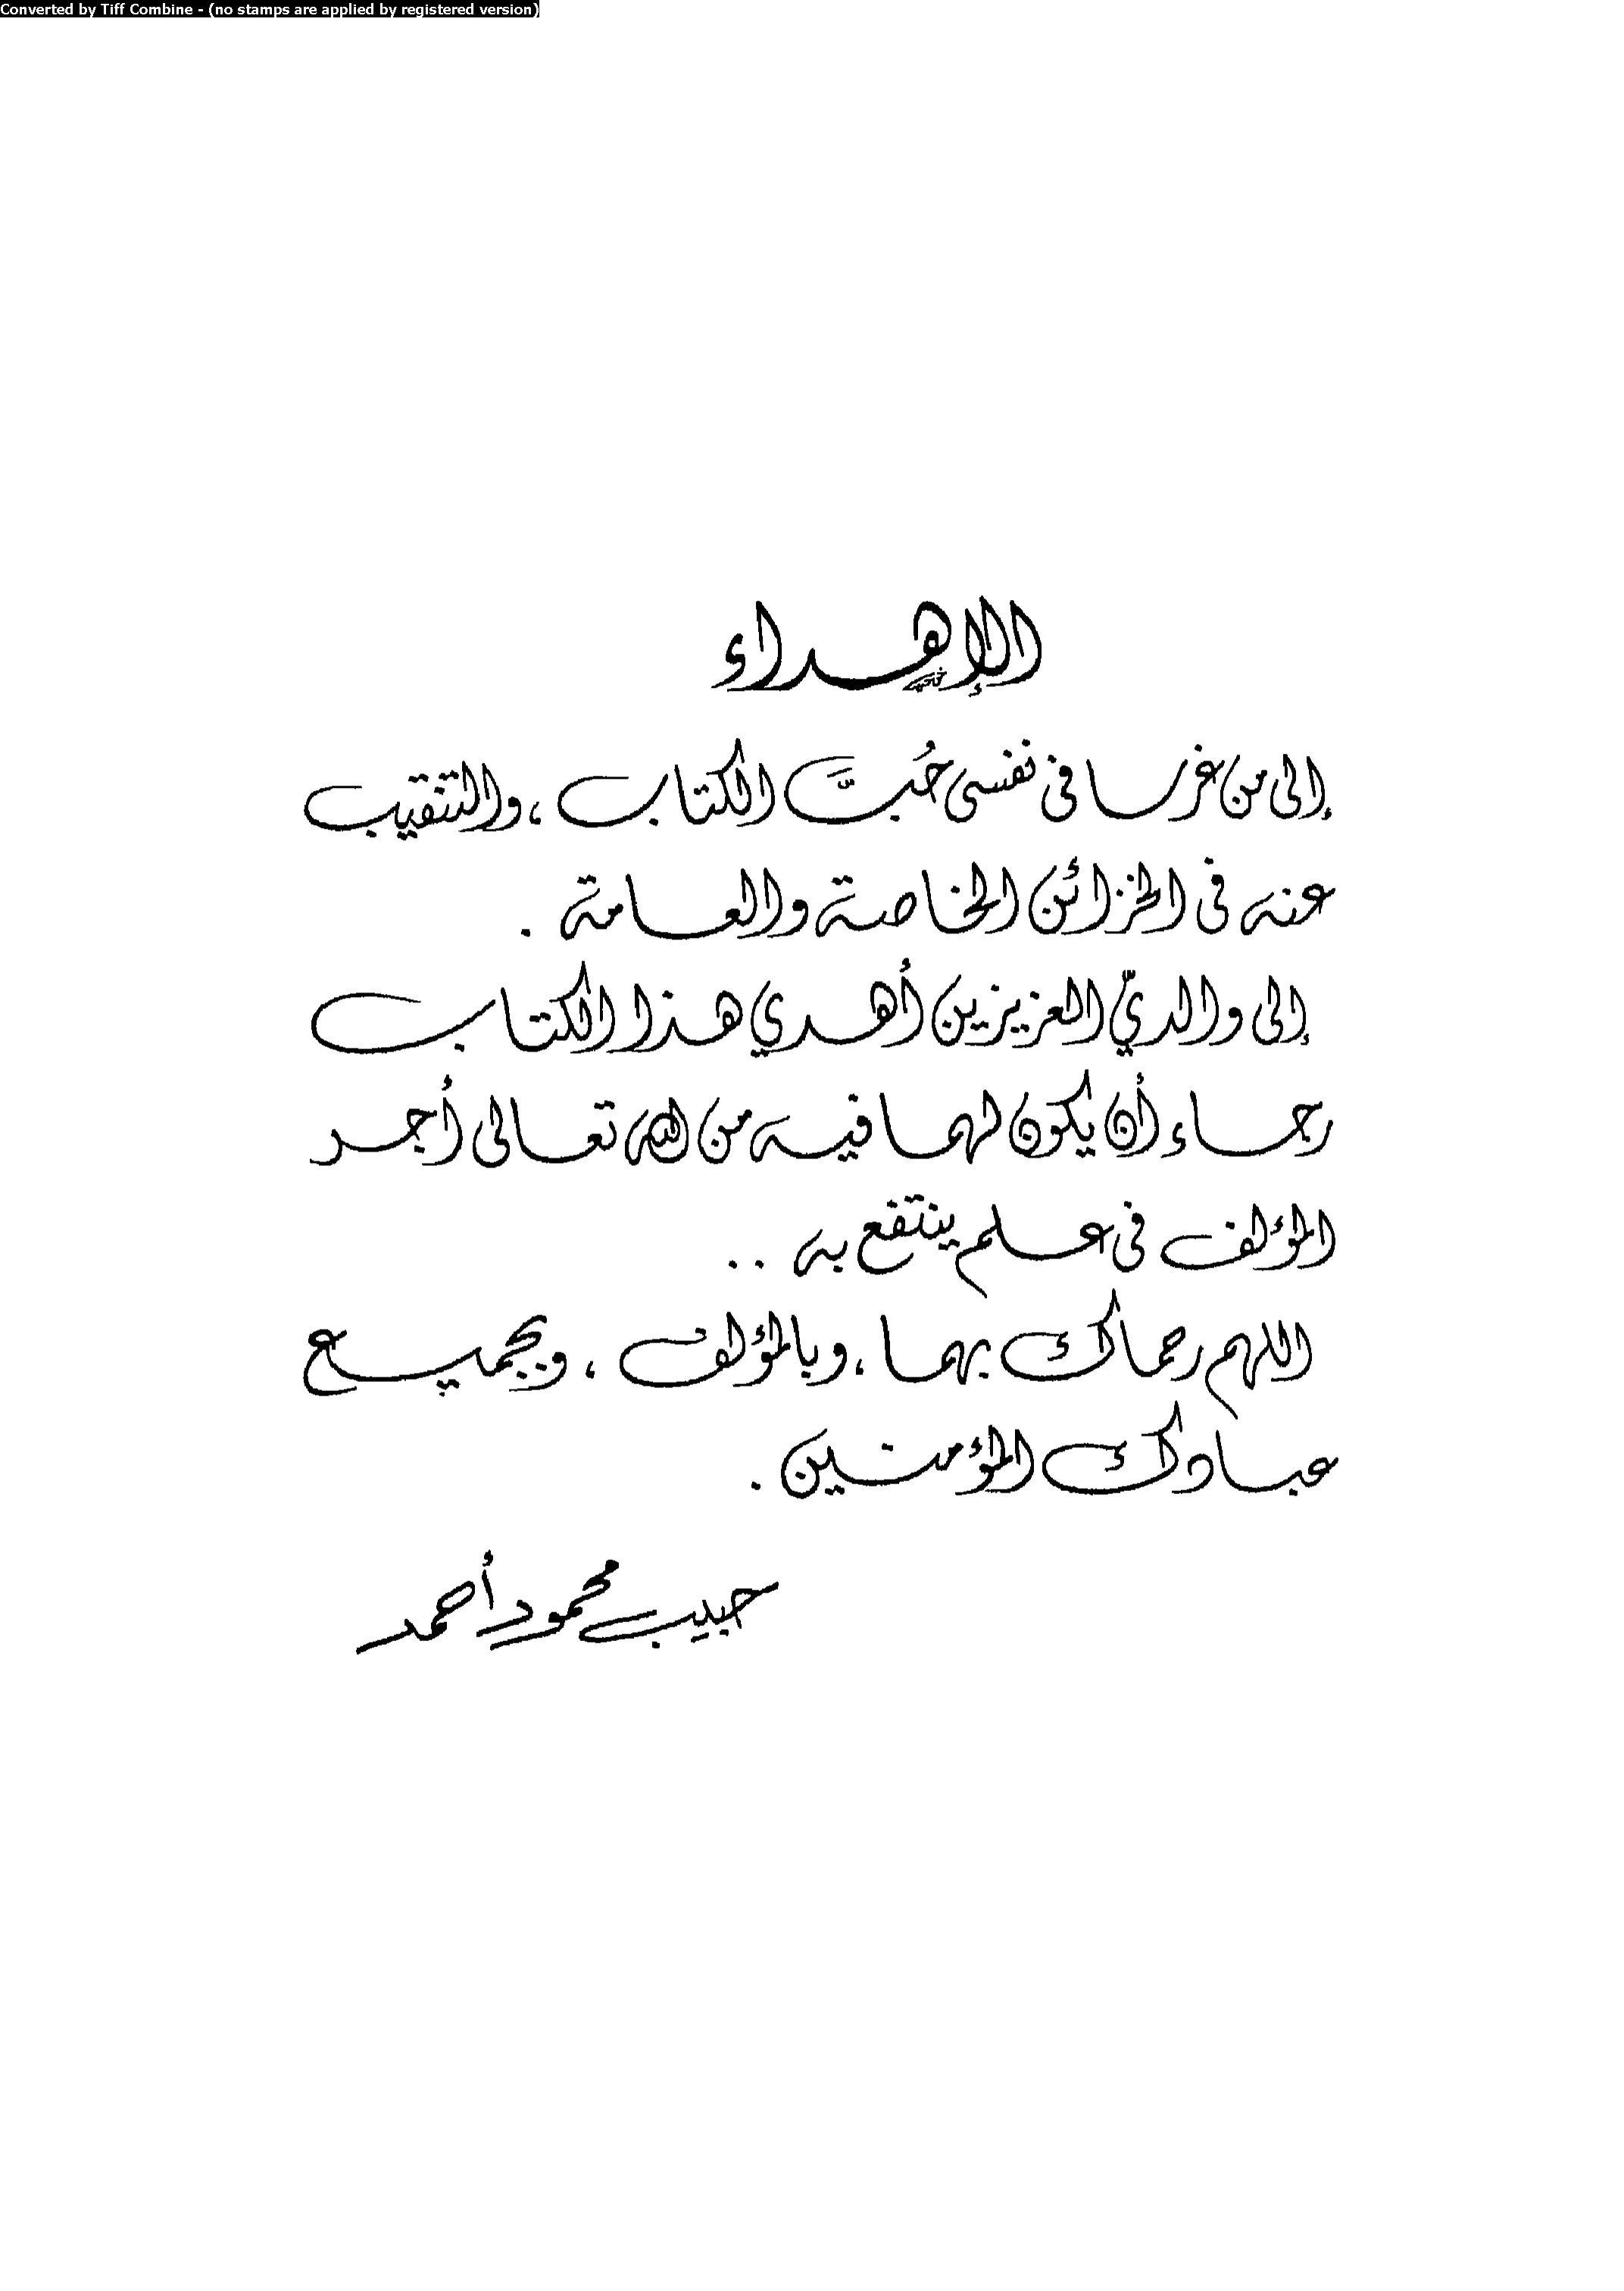 Converted by Tiff Combine - (no stamps are applied by registered version)
الإهداء
إلى من غرسا في نفسي حُبَّ الكتاب ، والتنقيب
عنه في الخزائن الخاصة والعامة .
إلى والديّ العزيزين أهدي هذا الكتاب
رجاء أن يكون لهما فيه من الله تعالى أجر
المؤلف في علم ينتفع به ..
اللهم رحماك بهما ، وبالمؤلف ، وبجميع
عبادك المؤمنين .
حبيب محمود أحمد